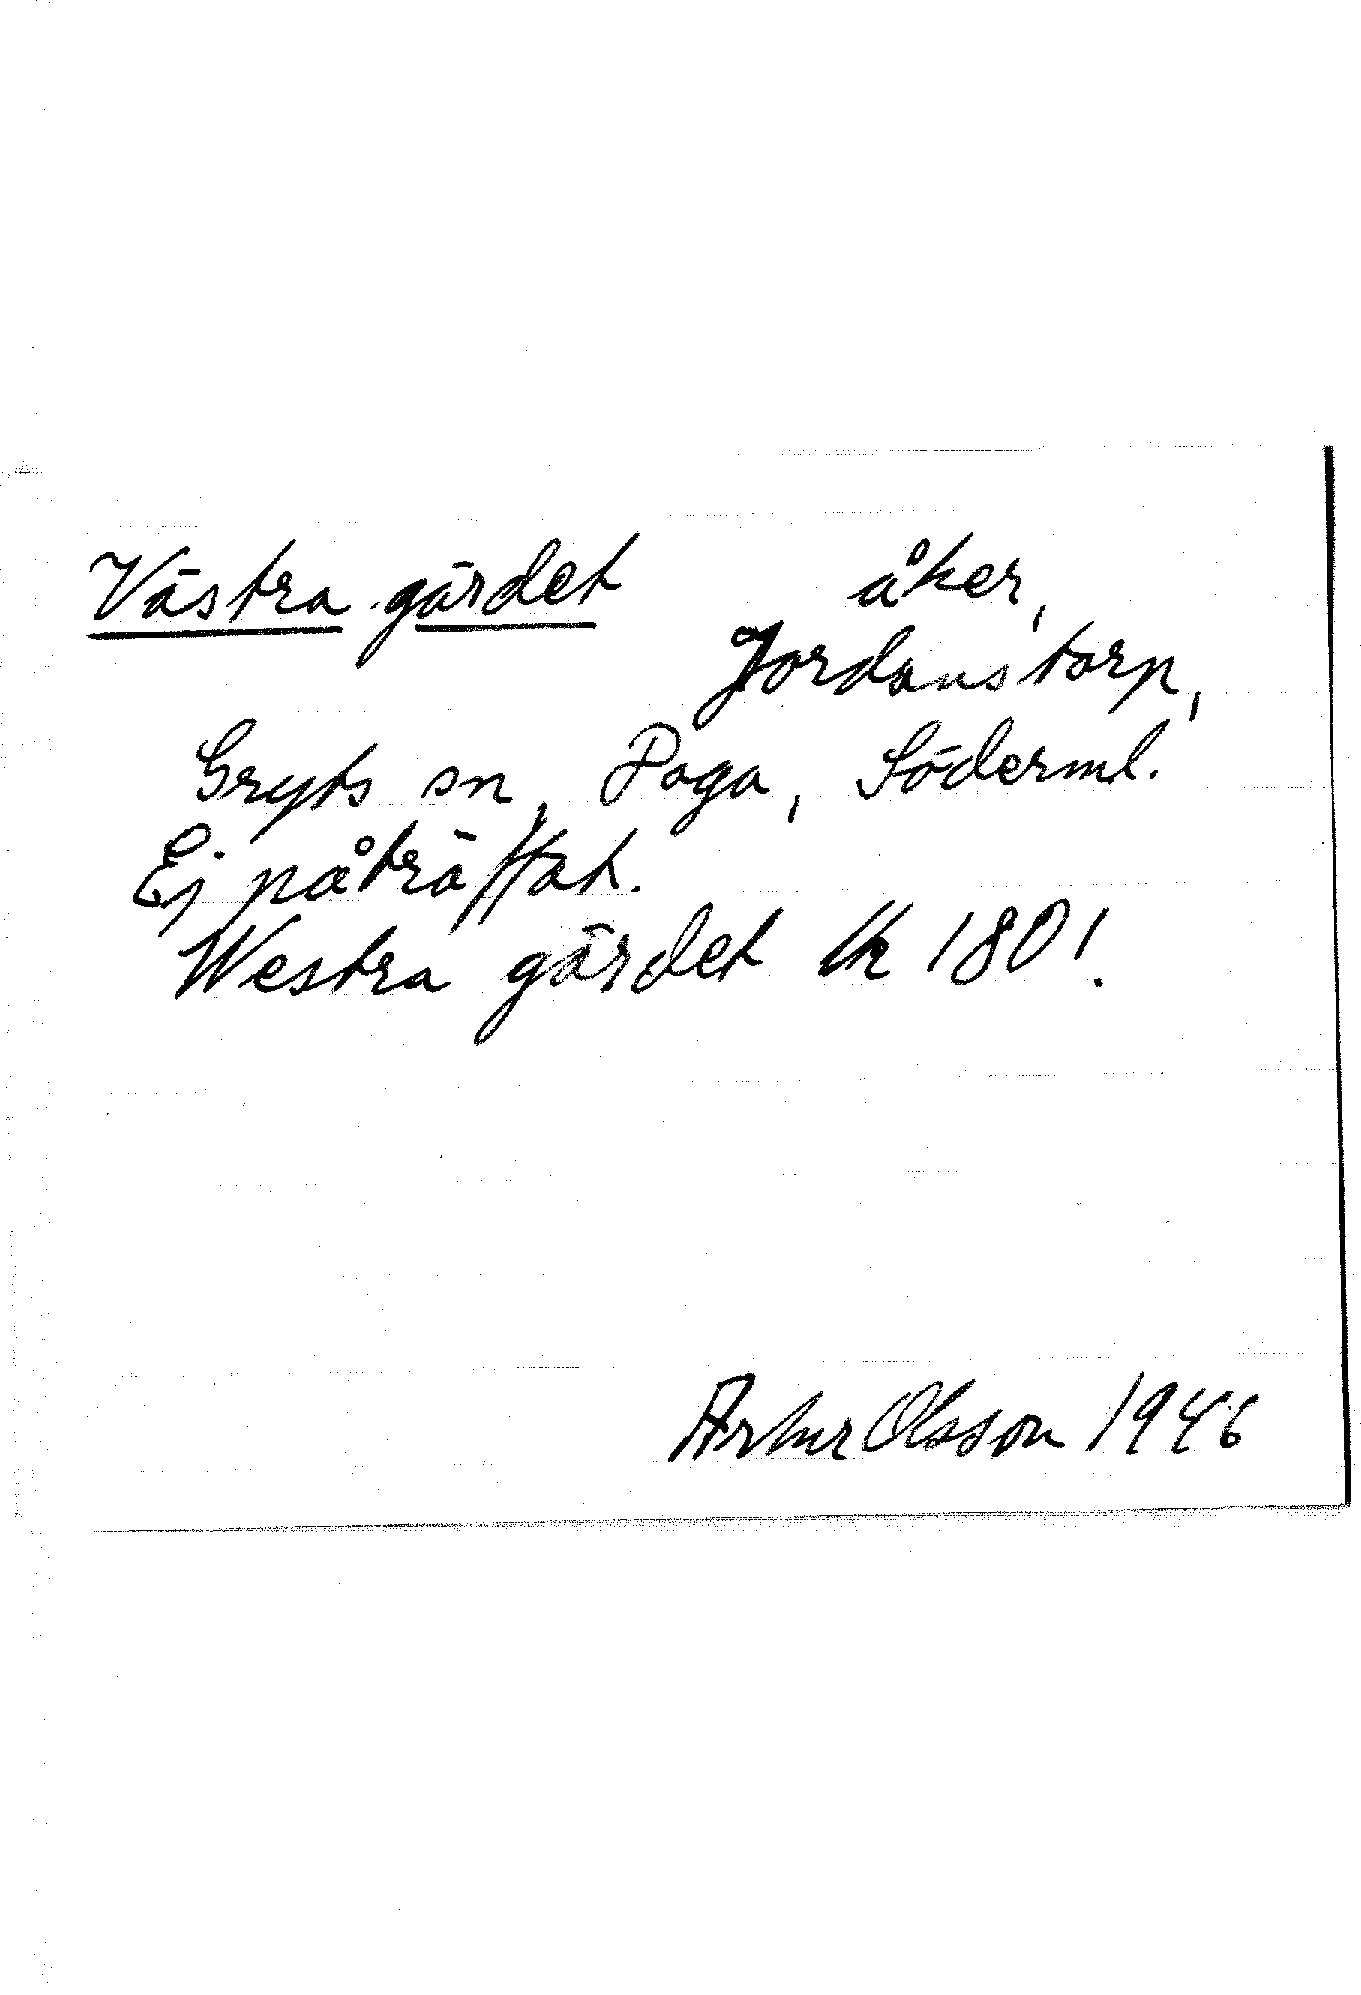 Västra gärdet åker,
Jordanstorp,
Gryts sn, Daga, Söderml.
Ej påträffat.
Westra gärdet lk 1801.
Artur Olsson 1946